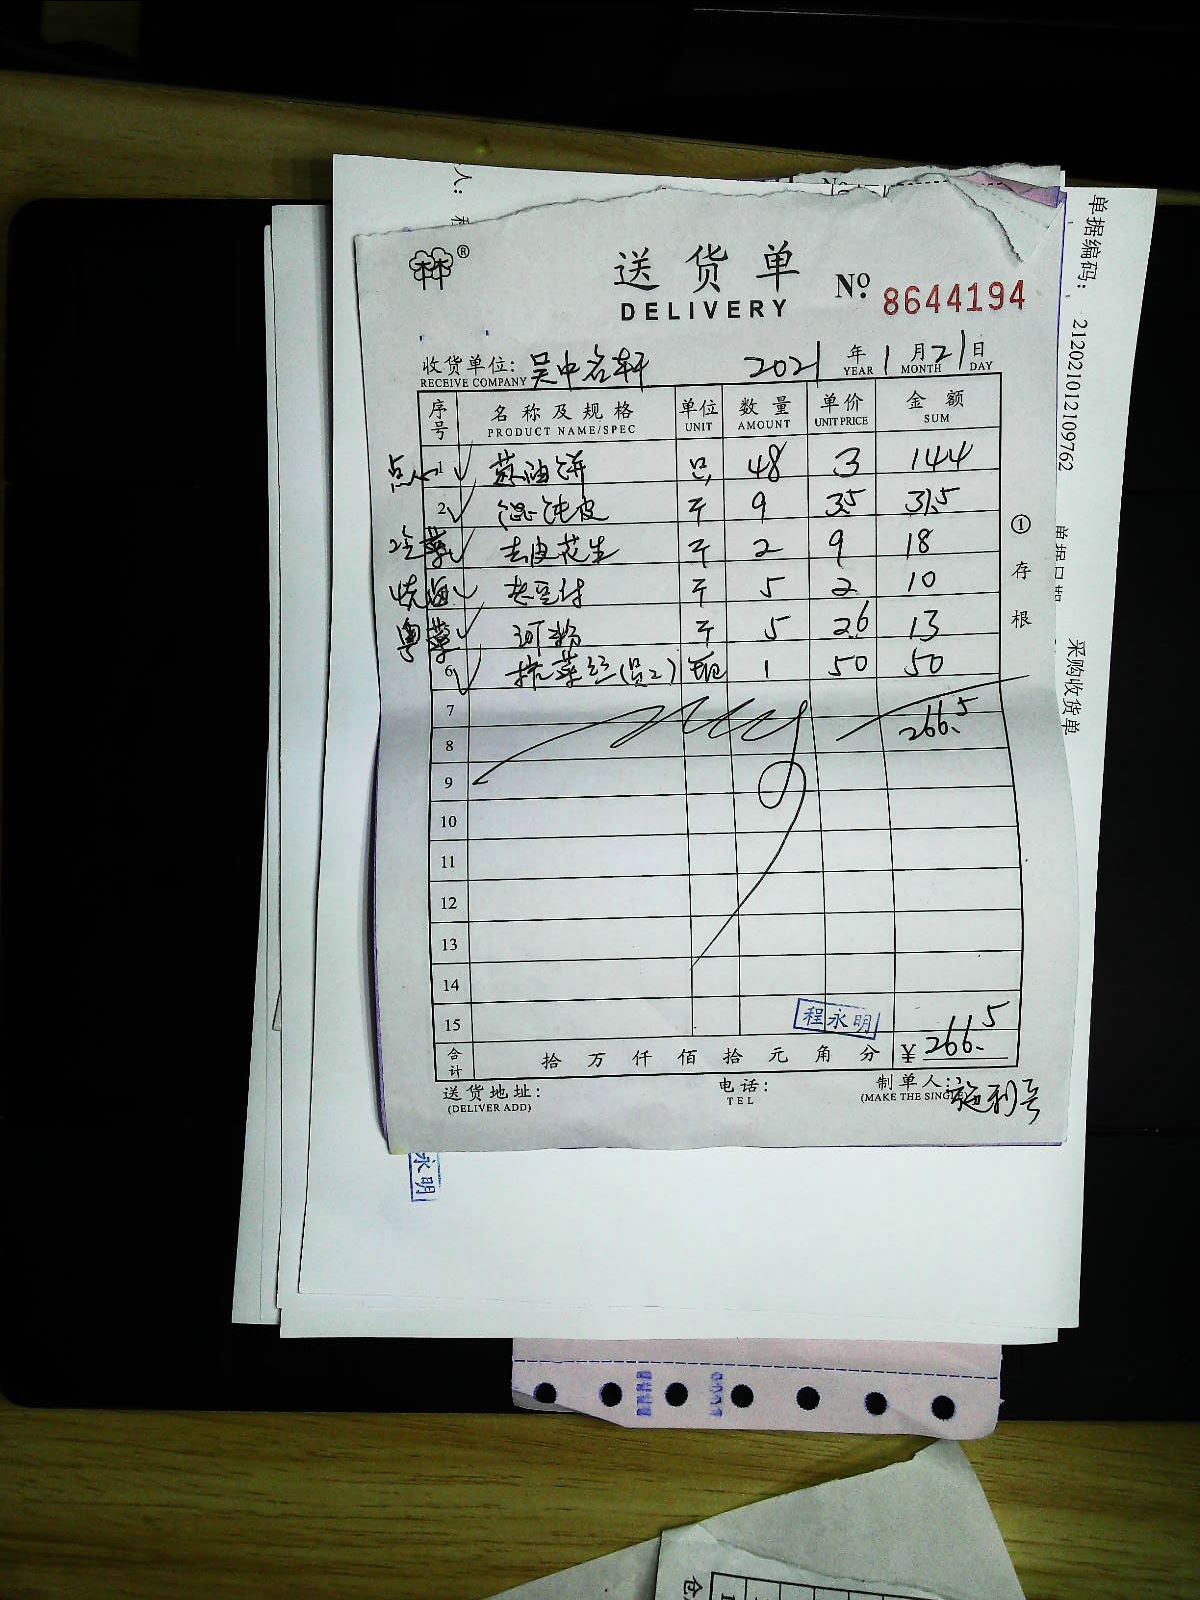 人:
®
送货单
DELIVERY
No.
8644194
收货单位: 吴中名轩
RECEIVE COMPANY
2021 年 1 月 21 日
YEAR MONTH DAY
序号 名称及规格 单位 数量 单价 金额
PRODUCT NAME/SPEC UNIT AMOUNT UNIT PRICE SUM
点心 1 ✓ 苏油饼 只 48 3 144
2 ✓ 馄饨皮 斤 9 3.5 31.5
冷菜 ✓ 去皮花生 斤 2 9 18
✓ 老豆付 斤 5 2 10
粤菜 ✓ 河粉 斤 5 2.6 13
6 ✓ 榨菜丝(员工) 1 50 50
7
266.5
8
9
10
11
12
13
14
15
程永明
合计 拾 万 仟 佰 拾 元 角 分 ¥ 266.5
送货地址: 电话: 制单人:
(DELIVER ADD) TEL (MAKE THE SING
①存根
单据编码: 212021012109762
采购收货单
永明